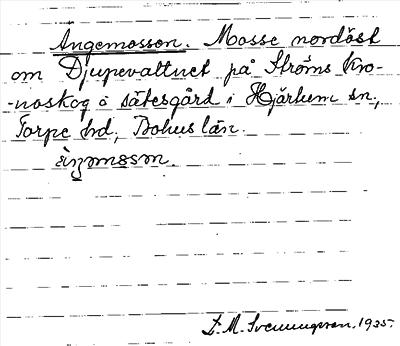 Ängemossen. Mosse nordöst
om Djupevattnet på Ströms kro-
-noskog å sätesgård i Hjärtum sn,
Torpe hd, Bohus län.
D. M. Svenningsson, 1935.